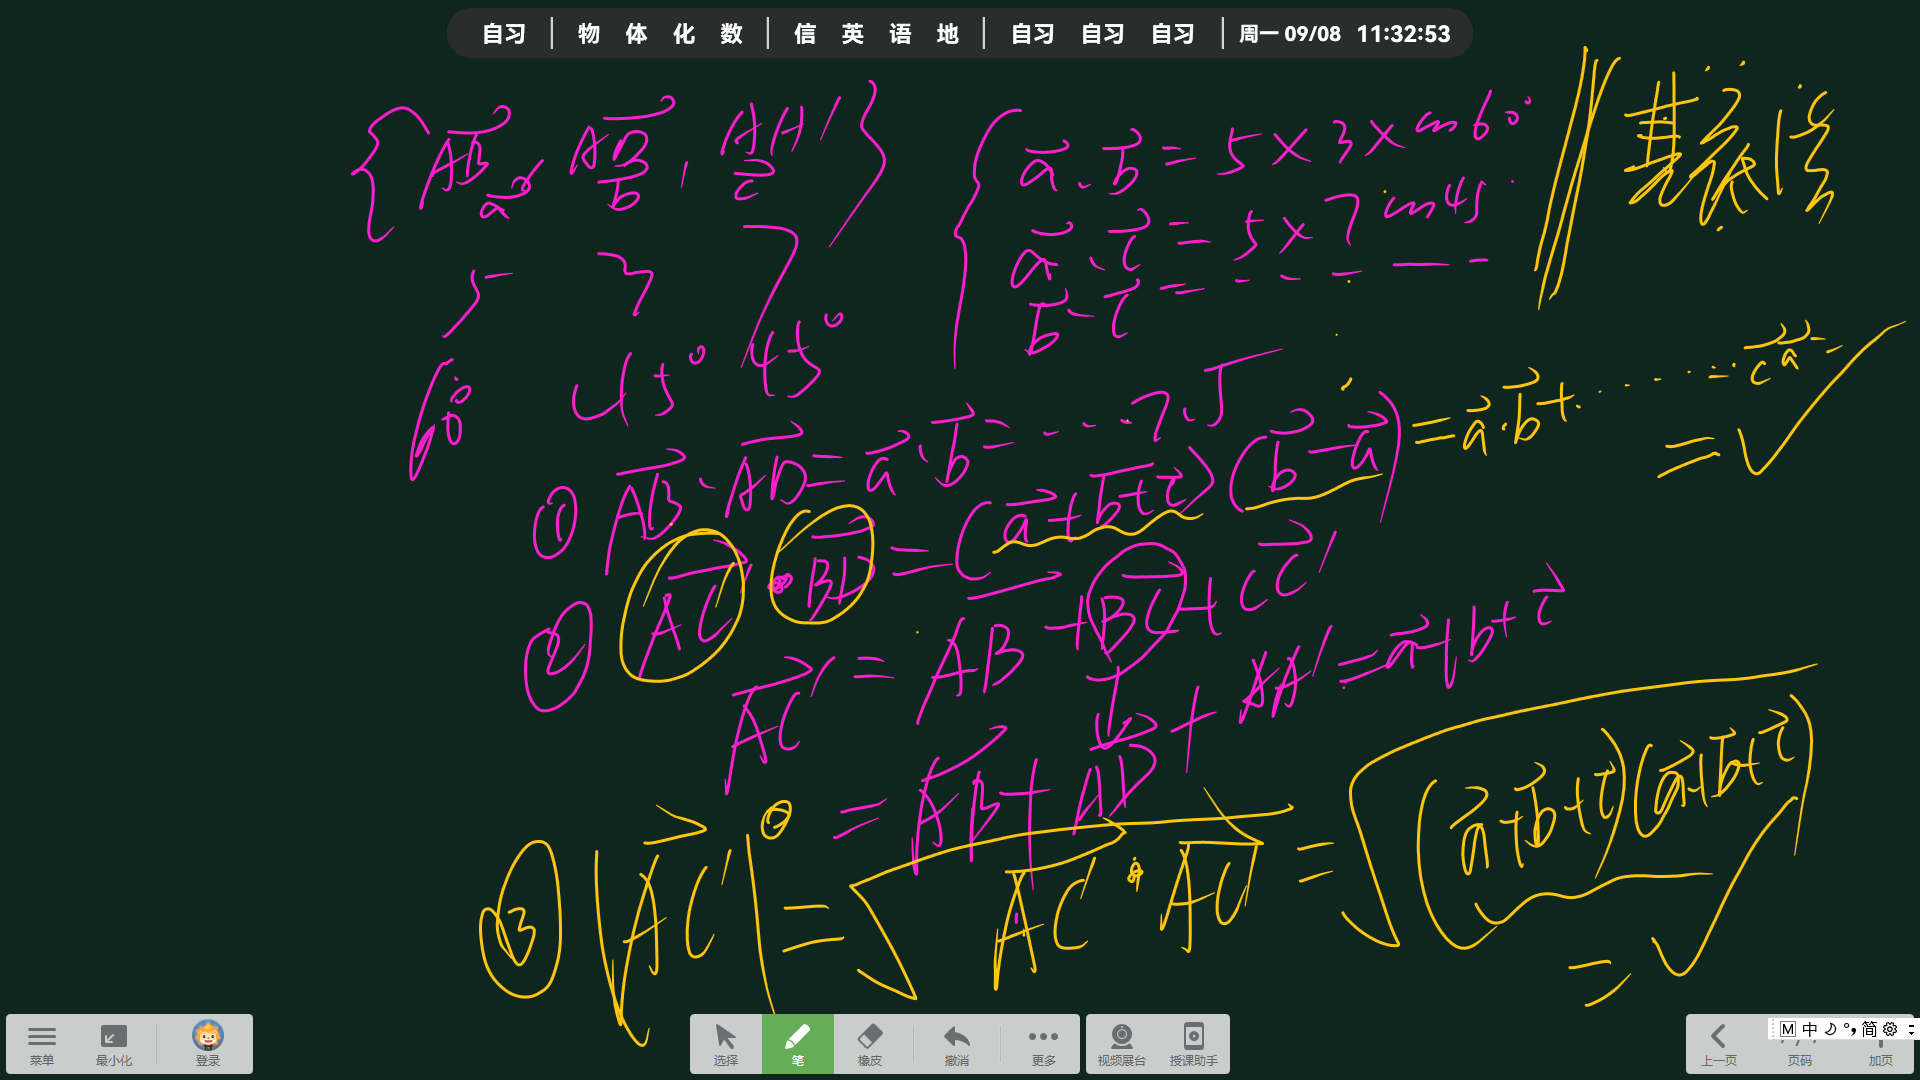 自习 | 物 体 化 数 | 信 英 语 地 | 自习 自习 自习 | 周一 09/08 11:32:53
{AB⃗, AD⃗, AA'⃗}
a⃗ b⃗ c⃗
5 3 7
60° 45° 45°
a⃗·b⃗=5×3×cos60°
a⃗·c⃗=5×7cos45
b⃗·c⃗=------
基底法
① AB⃗·AD⃗=a⃗·b⃗=...7.5
② AC'⃗·BD⃗=(a⃗+b⃗+c⃗)(b⃗-a⃗)=a⃗·b⃗+......c⃗a⃗=
=√
AC'⃗=AB+BC⃗+CC'⃗
=AB⃗+AD⃗+AA'=a⃗+b+c⃗
③ |AC'⃗|=√AC'⃗·AC'⃗=√(a⃗+b⃗+c⃗)(a⃗+b⃗+c⃗)
=√
菜单 最小化 登录 选择 笔 橡皮 撤消 更多 视频展台 授课助手 上一页 页码 加页
M 中 简